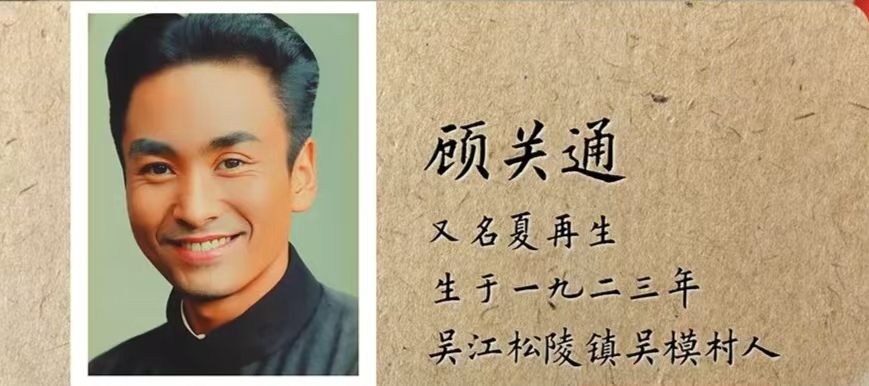 顾关通
又名夏再生
生于一九二三年
吴江松陵镇吴模村人